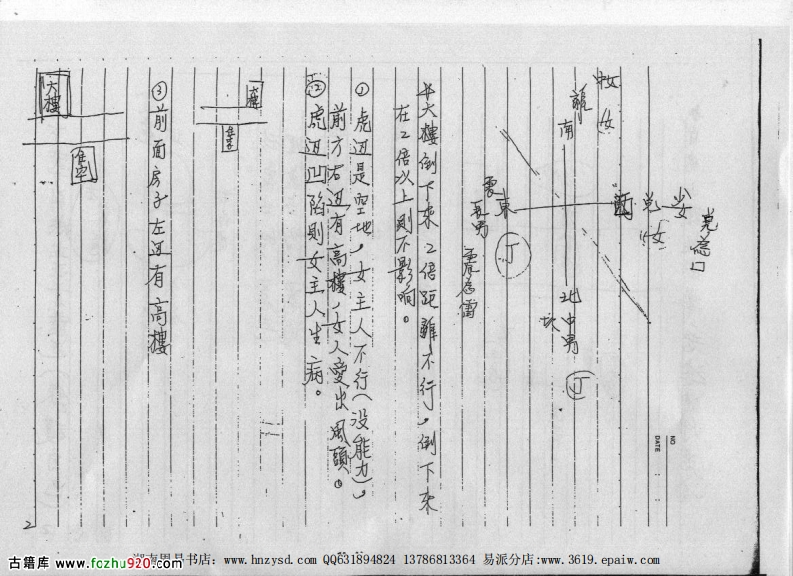 NO
DATE
少女
兌為口
兌
西
女
南
東
震
長男
震為雷
丁
北
中男
坎
丁
大樓倒下來2倍距離不行，倒下來
在2倍以上則不影响。
① 虎边是空地，女主人不行（没能力），
前方右边有高樓，女人愛出風頭。
② 虎边凹陷則女主人生病。
③ 前面房子左边有高樓
大樓
住宅
2
湖南周易书店：www.hnzysd.com QQ631894824 13786813364 易派分店:www.3619.epaiw.com
古籍库 www.fczhu920.com